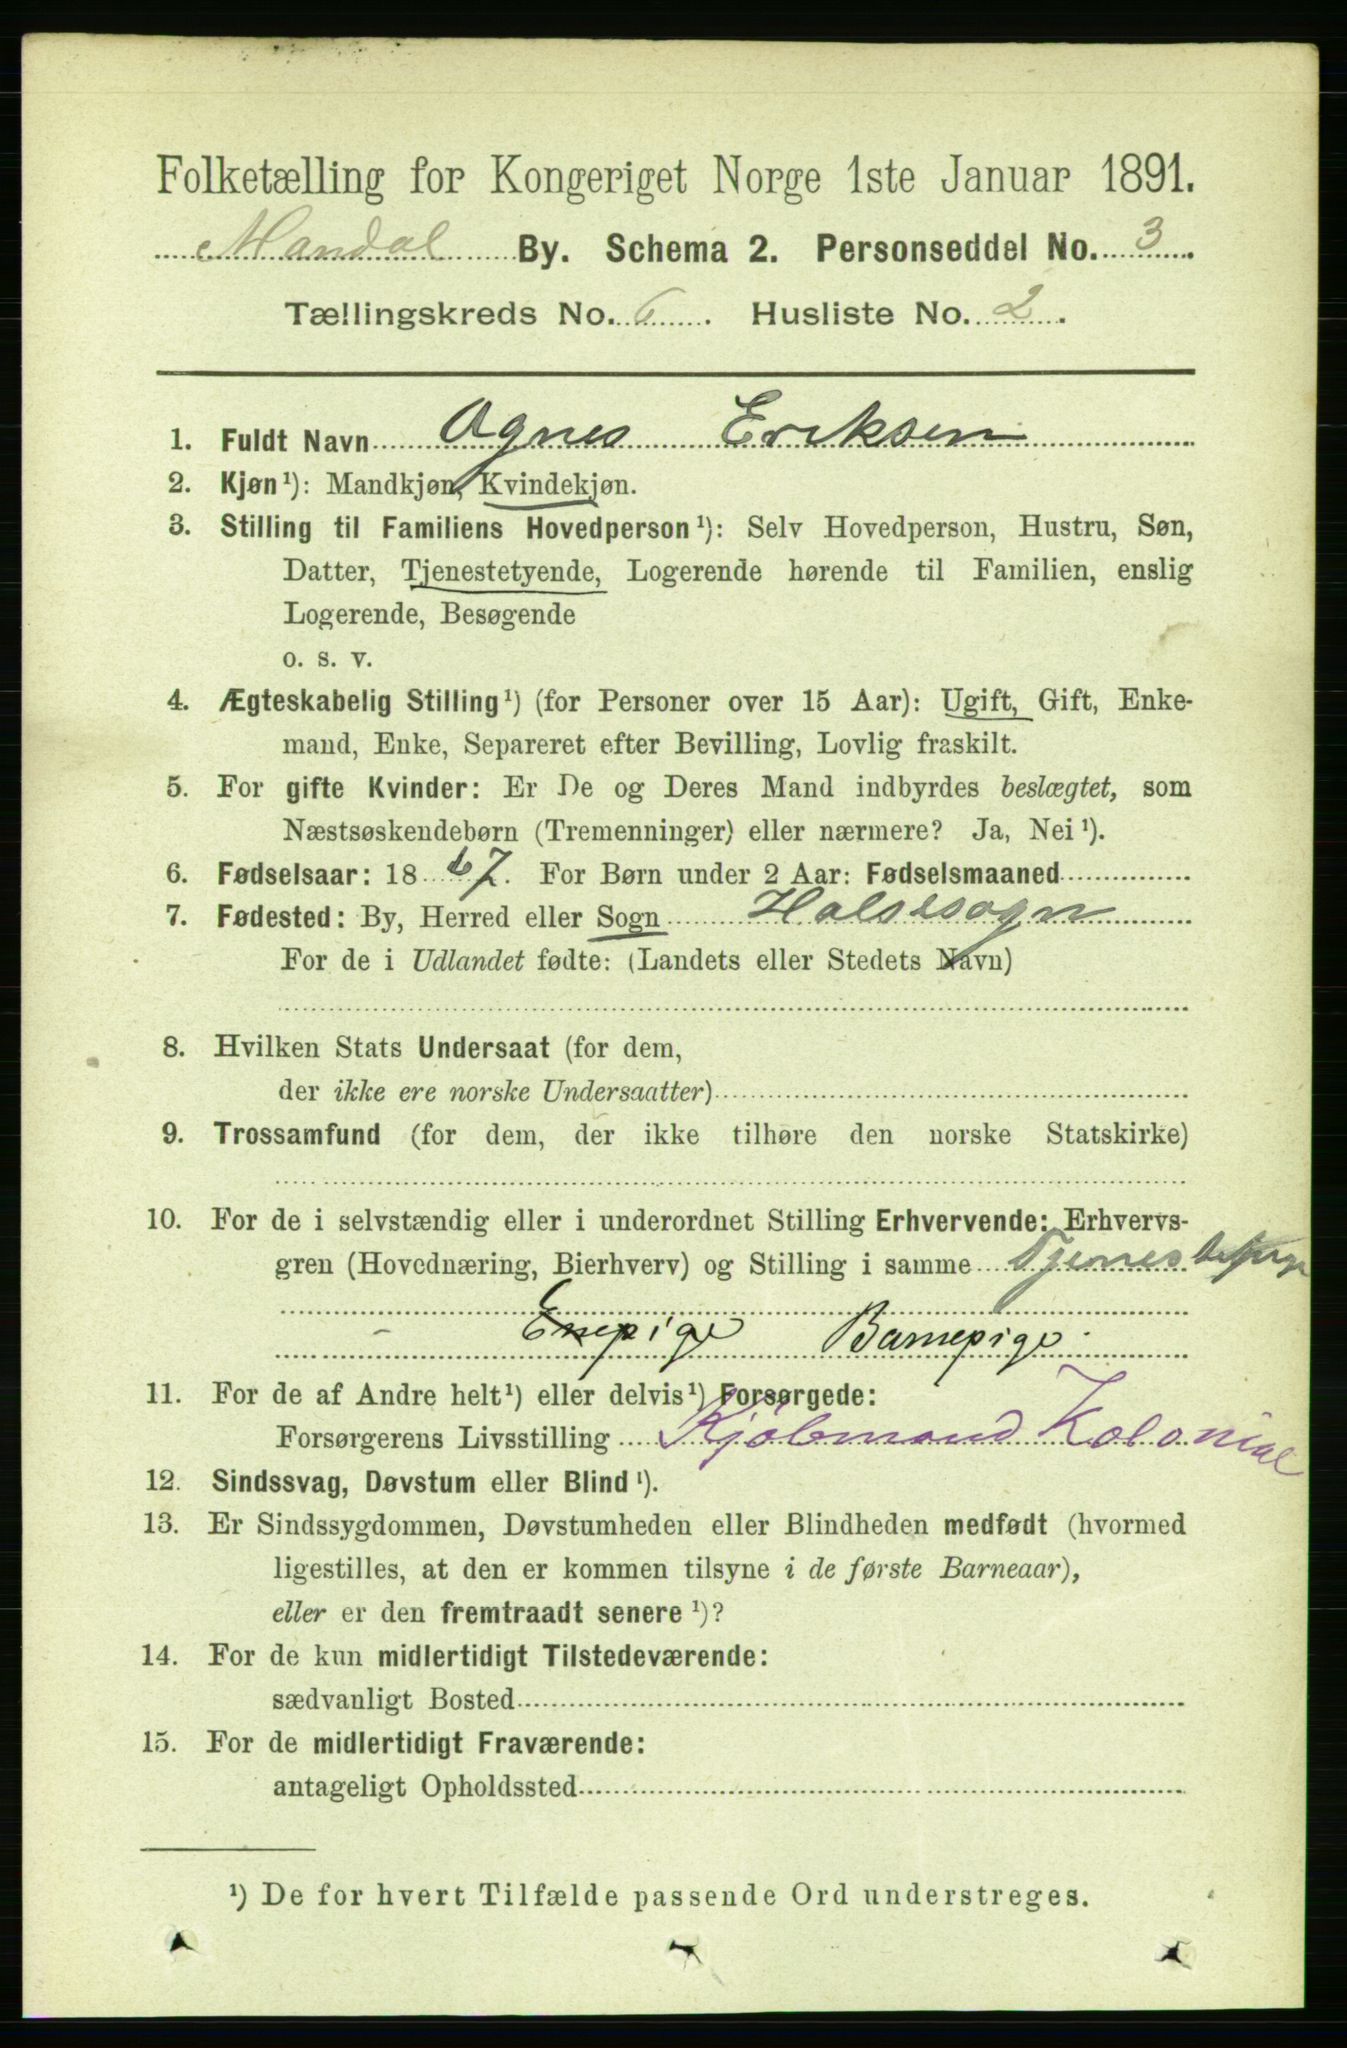 Folketælling for Kongeriget Norge 1ste Januar 1891.
Mandal By. Schema 2. Personseddel No. 3.
Tællingskreds No. 6. Husliste No. 2.
1. Fuldt Navn Agnes Eriksen
2. Kjøn¹): Mandkjøn, Kvindekjøn.
3. Stilling til Familiens Hovedperson¹): Selv Hovedperson, Hustru, Søn,
Datter, Tjenestetyende, Logerende hørende til Familien, enslig
Logerende, Besøgende
o. s. v.
4. Ægteskabelig Stilling¹) (for Personer over 15 Aar): Ugift, Gift, Enke-
mand, Enke, Separeret efter Bevilling, Lovlig fraskilt.
5. For gifte Kvinder: Er De og Deres Mand indbyrdes beslægtet, som
Næstsøskendebørn (Tremenninger) eller nærmere? Ja, Nei¹).
6. Fødselsaar: 1867. For Børn under 2 Aar: Fødselsmaaned
7. Fødested: By, Herred eller Sogn Halsesogn
For de i Udlandet fødte: (Landets eller Stedets Navn)
8. Hvilken Stats Undersaat (for dem,
der ikke ere norske Undersaatter)
9. Trossamfund (for dem, der ikke tilhøre den norske Statskirke)
10. For de i selvstændig eller i underordnet Stilling Erhvervende: Erhvervs-
gren (Hovednæring, Bierhverv) og Stilling i samme Tjenestepige
Enepige Barnepige.
11. For de af Andre helt¹) eller delvis¹) Forsørgede:
Forsørgerens Livsstilling Kjøbmand Kolonial
12. Sindssvag, Døvstum eller Blind¹).
13. Er Sindssygdommen, Døvstumheden eller Blindheden medfødt (hvormed
ligestilles, at den er kommen tilsyne i de første Barneaar),
eller er den fremtraadt senere¹)?
14. For de kun midlertidigt Tilstedeværende:
sædvanligt Bosted
15. For de midlertidigt Fraværende:
antageligt Opholdssted
¹) De for hvert Tilfælde passende Ord understreges.